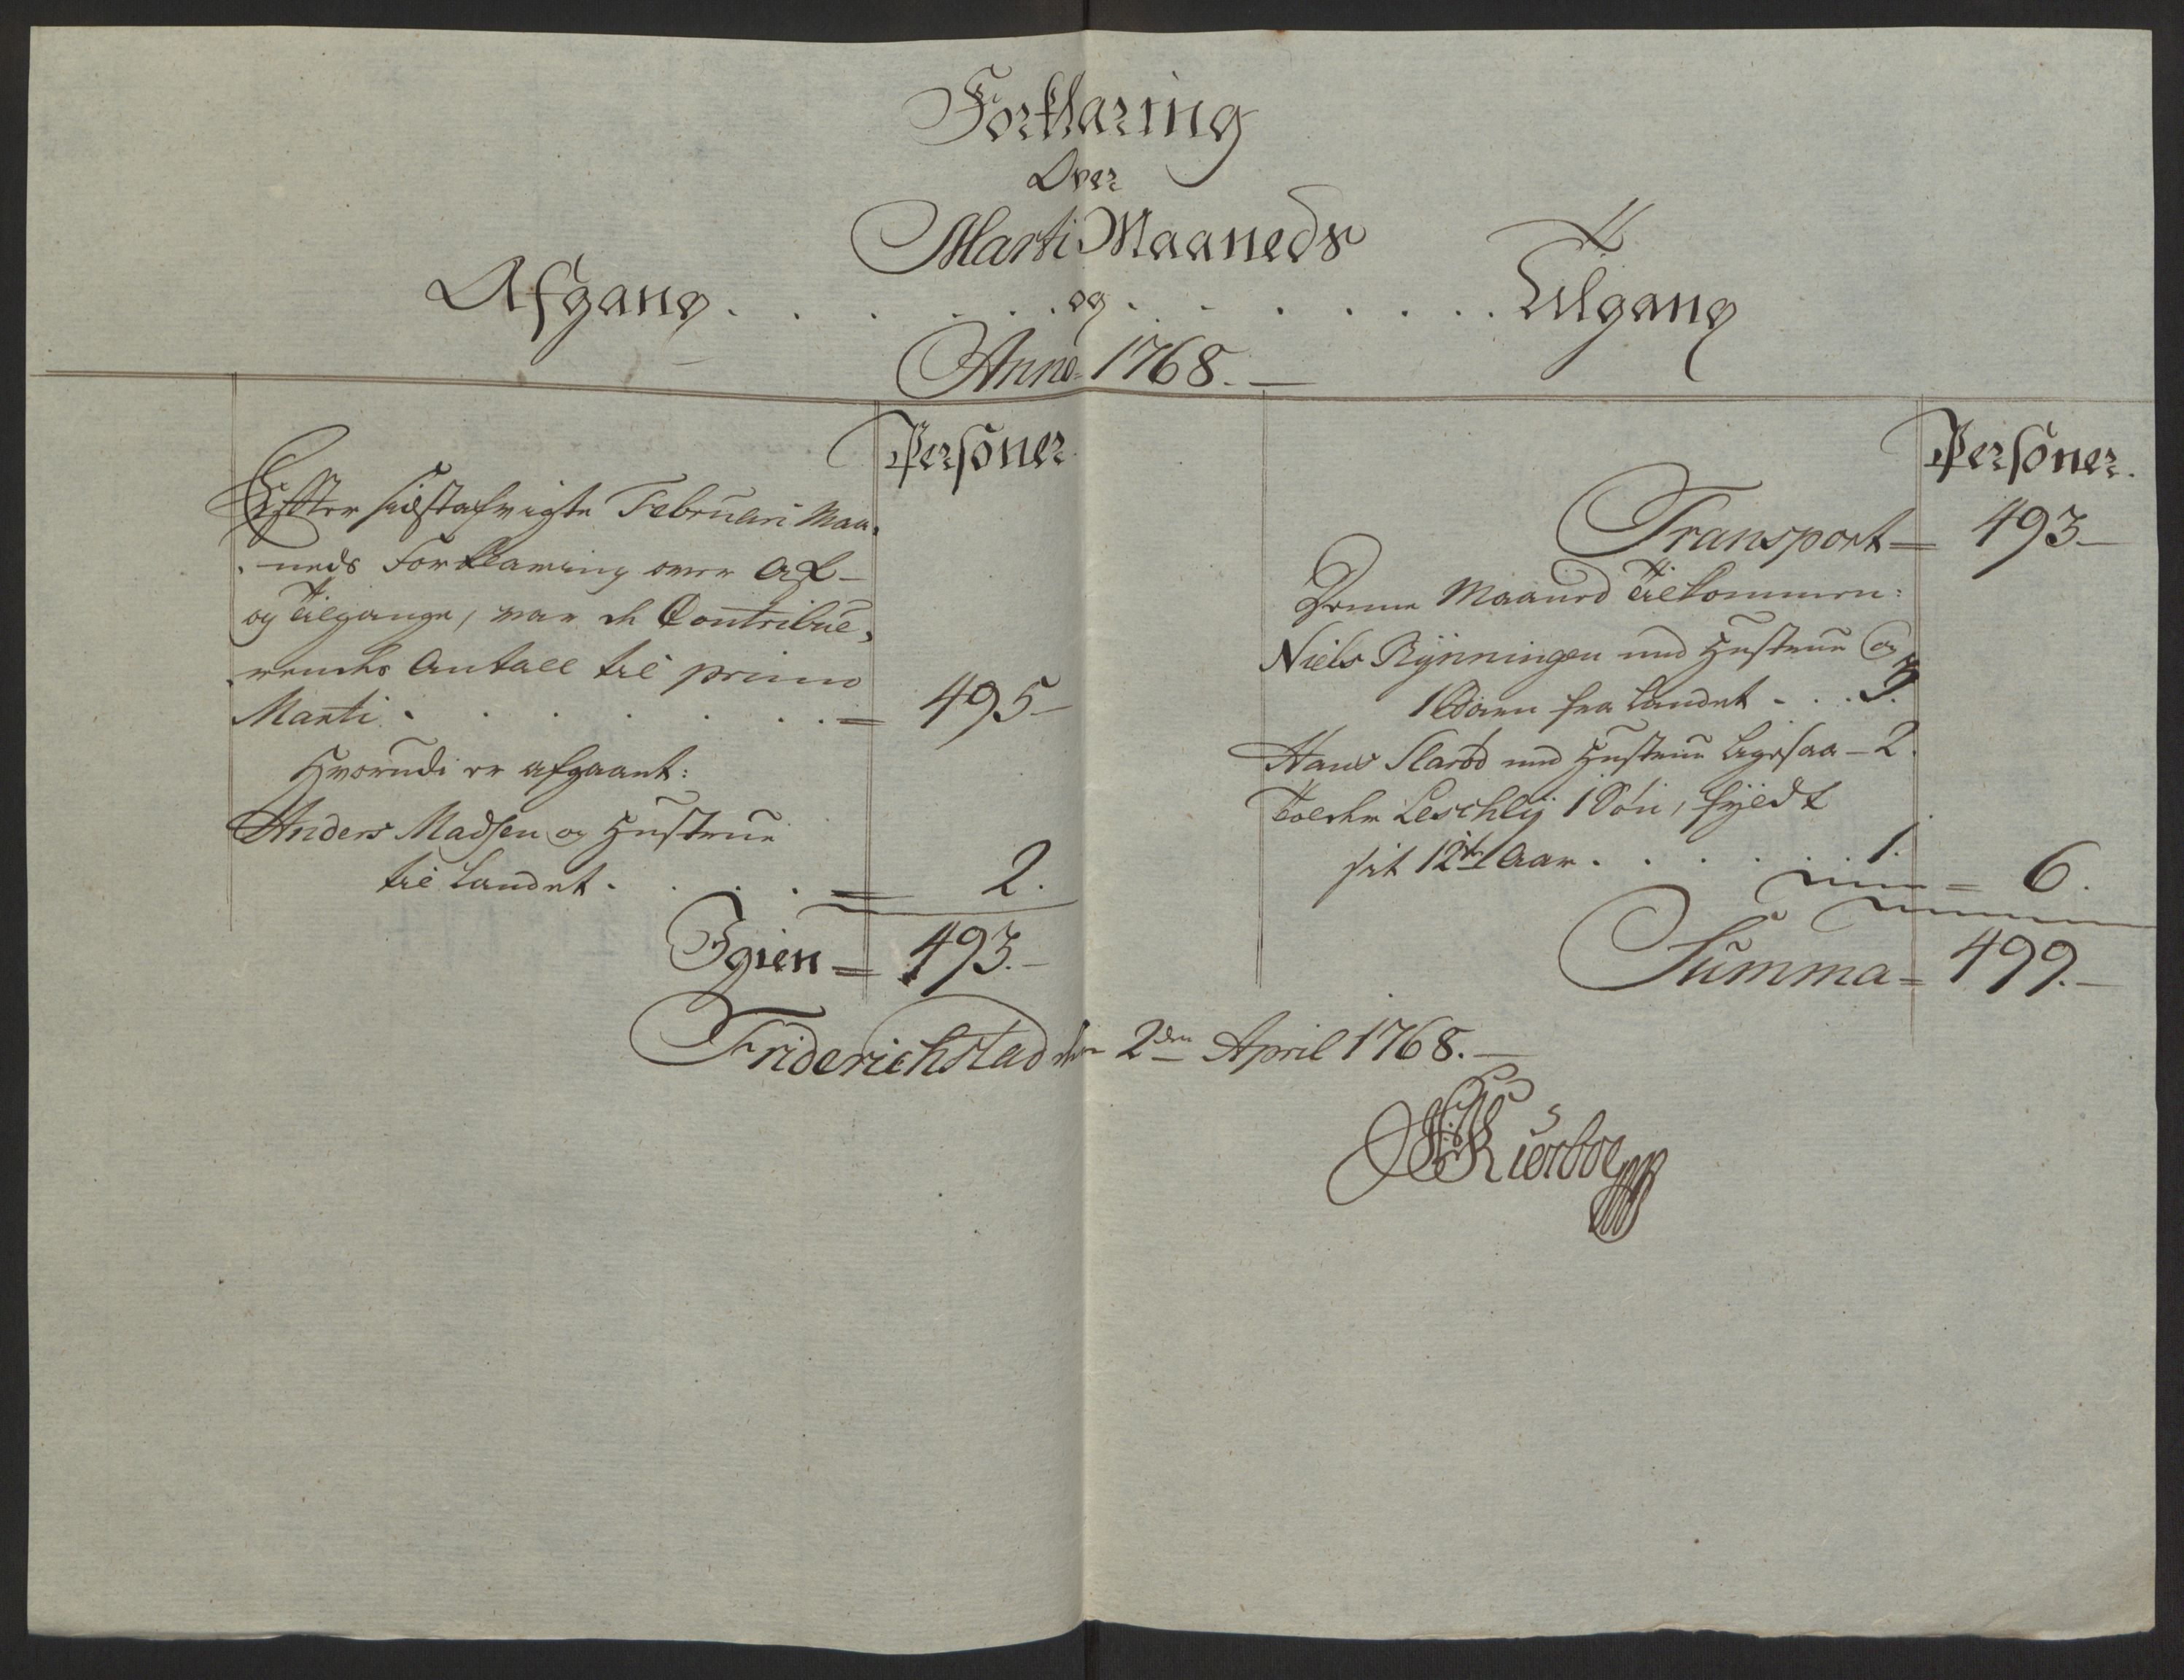 Forklaring
Over
Marti Maaneds
Afgang . . . . . . og . . . . . . Tilgang
Anno 1768.
Personer
Efter sidstafvigte Februari Maa-
neds Forklaring over Af-
og Tilgange, var de Contribue-
rendes Antall til primo
Marti . . . . . . . = 495
Hvorudi er afgaaet:
Anders Madsen og Hustrue
til Landet . . . . = 2.
Igien = 493.
Personer.
Transport = 493
Denne Maaned Tilkommen:
Niels Rÿnningen med Hustrue og
1 Barn fra Landet . . . 3.
Hans Slaröd med Hustrue ligesaa - 2.
Tolder Leschlÿ 1 Sön, fÿldt
sit 12te Aar . . . . . 1.
= 6.
Summa = 499.
Friderichstad den 2den April 1768.
Kierboe